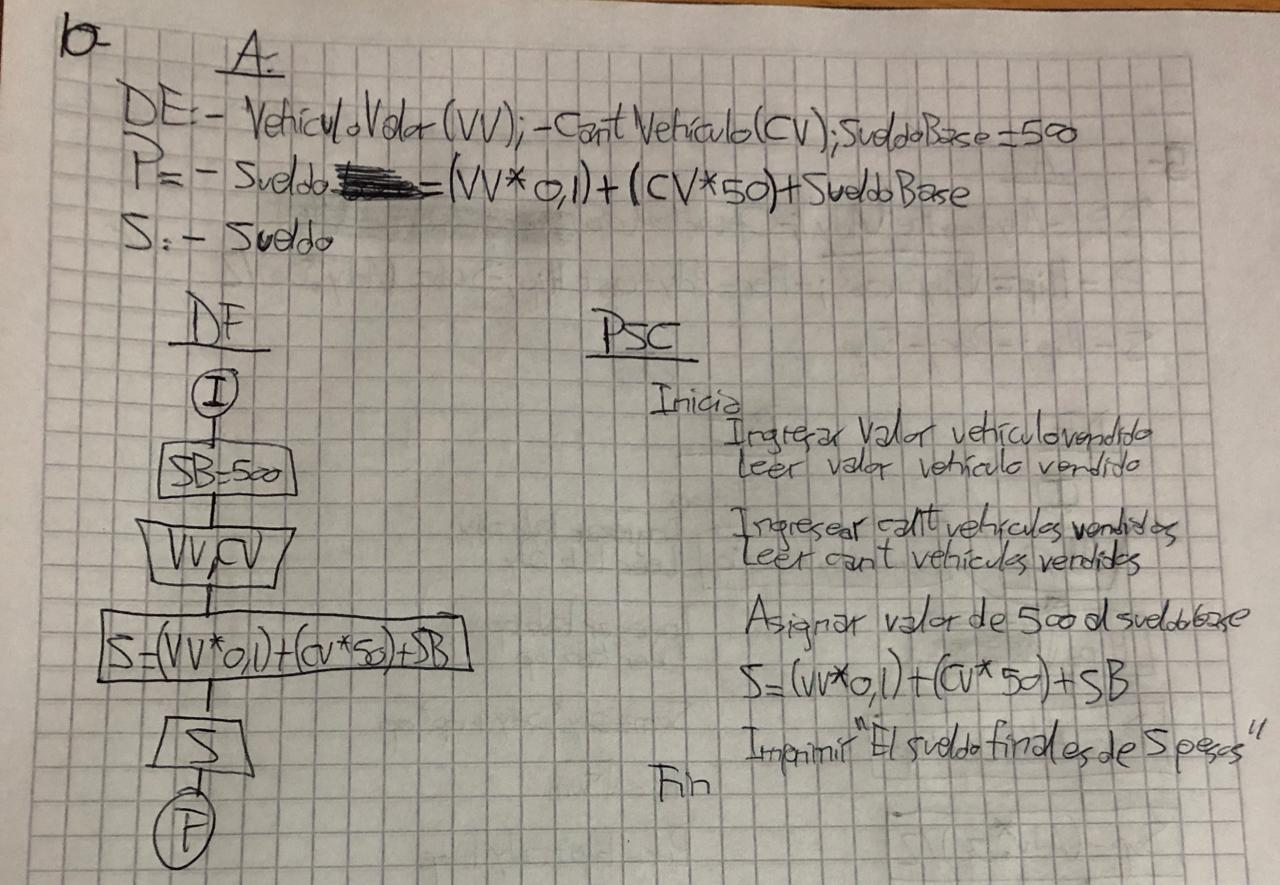 b-
A:
DE:- VehículoValor(VV); -Cant Vehículo(CV); SueldoBase=500
P= - Sueldo =(VV*0,1)+(CV*50)+SueldoBase
S:- Sueldo
DF
I
SB=500
VV,CV
S=(VV*0,1)+(CV*50)+SB
S
F
PSC
Inicio
Ingresar Valor vehículo vendido
Leer valor vehículo vendido
Ingresear cant vehículos vendidos
Leer cant vehículos vendidos
Asignar valor de 500 al sueldo base
S=(VV*0,1)+(CV*50)+SB
Imprimir "El sueldo final es de S pesos"
Fin